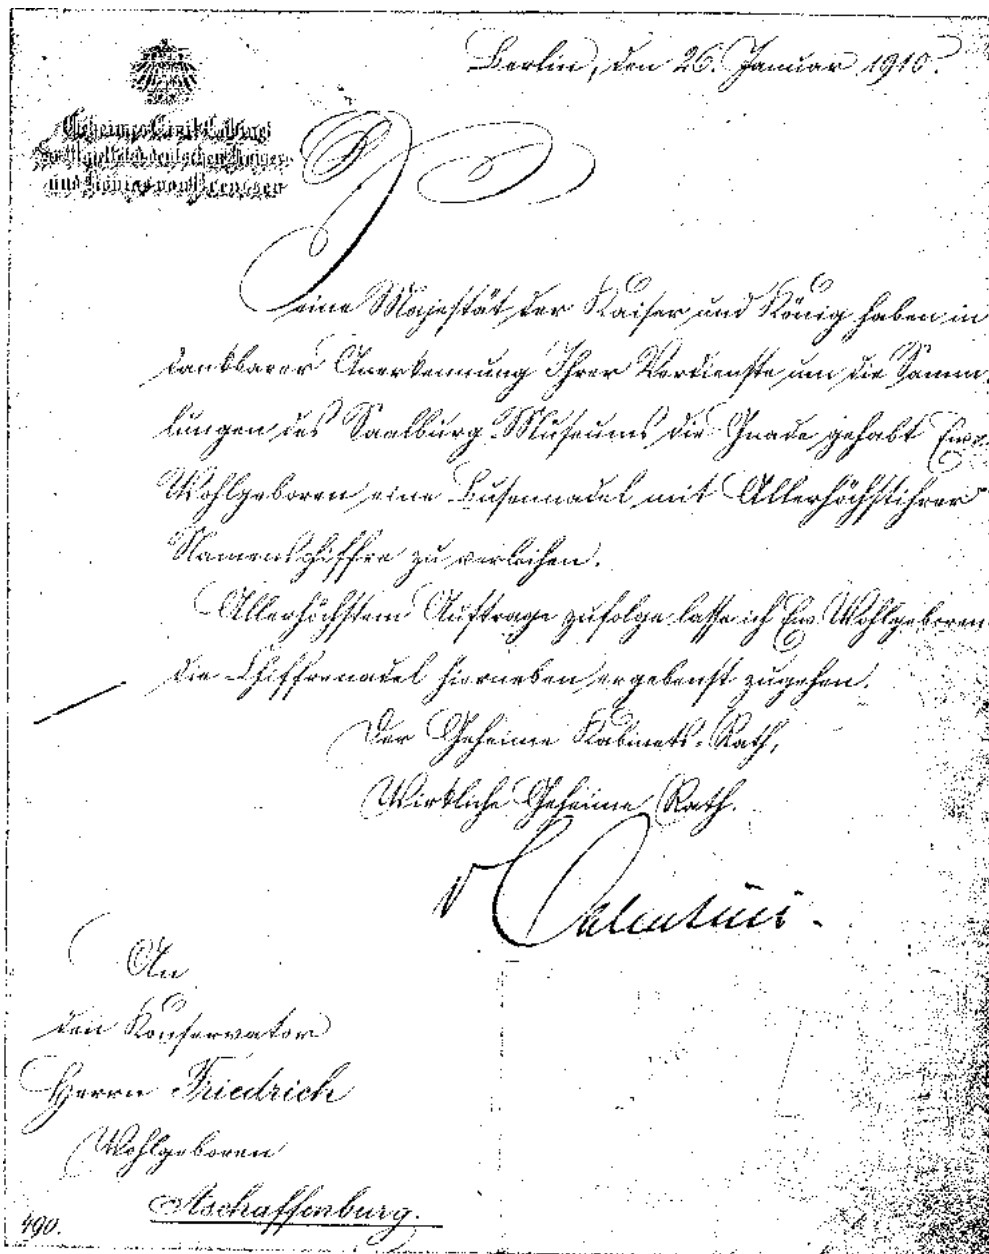 Berlin, den 26. Januar 1910.
Geheimes Civil-Cabinet
Sr. Majestät des deutschen Kaisers
und Königs von Preussen
Seine Majestät der Kaiser und König haben in
dankbarer Anerkennung Ihrer Verdienste um die Samm-
lungen des Saalburg-Museums die Gnade gehabt Euer
Wohlgeboren eine Busennadel mit Allerhöchstihrer
Namenschiffre zu verleihen.
Allerhöchstem Auftrage zufolge lasse ich Ew. Wohlgeboren
die Chiffrenadel hierneben ergebenst zugehen.
Der Geheime Kabinets-Rath,
Wirkliche Geheime Rath.
v Valentini.
An
den Konservator
Herrn Friedrich
Wohlgeboren
Aschaffenburg.
490.